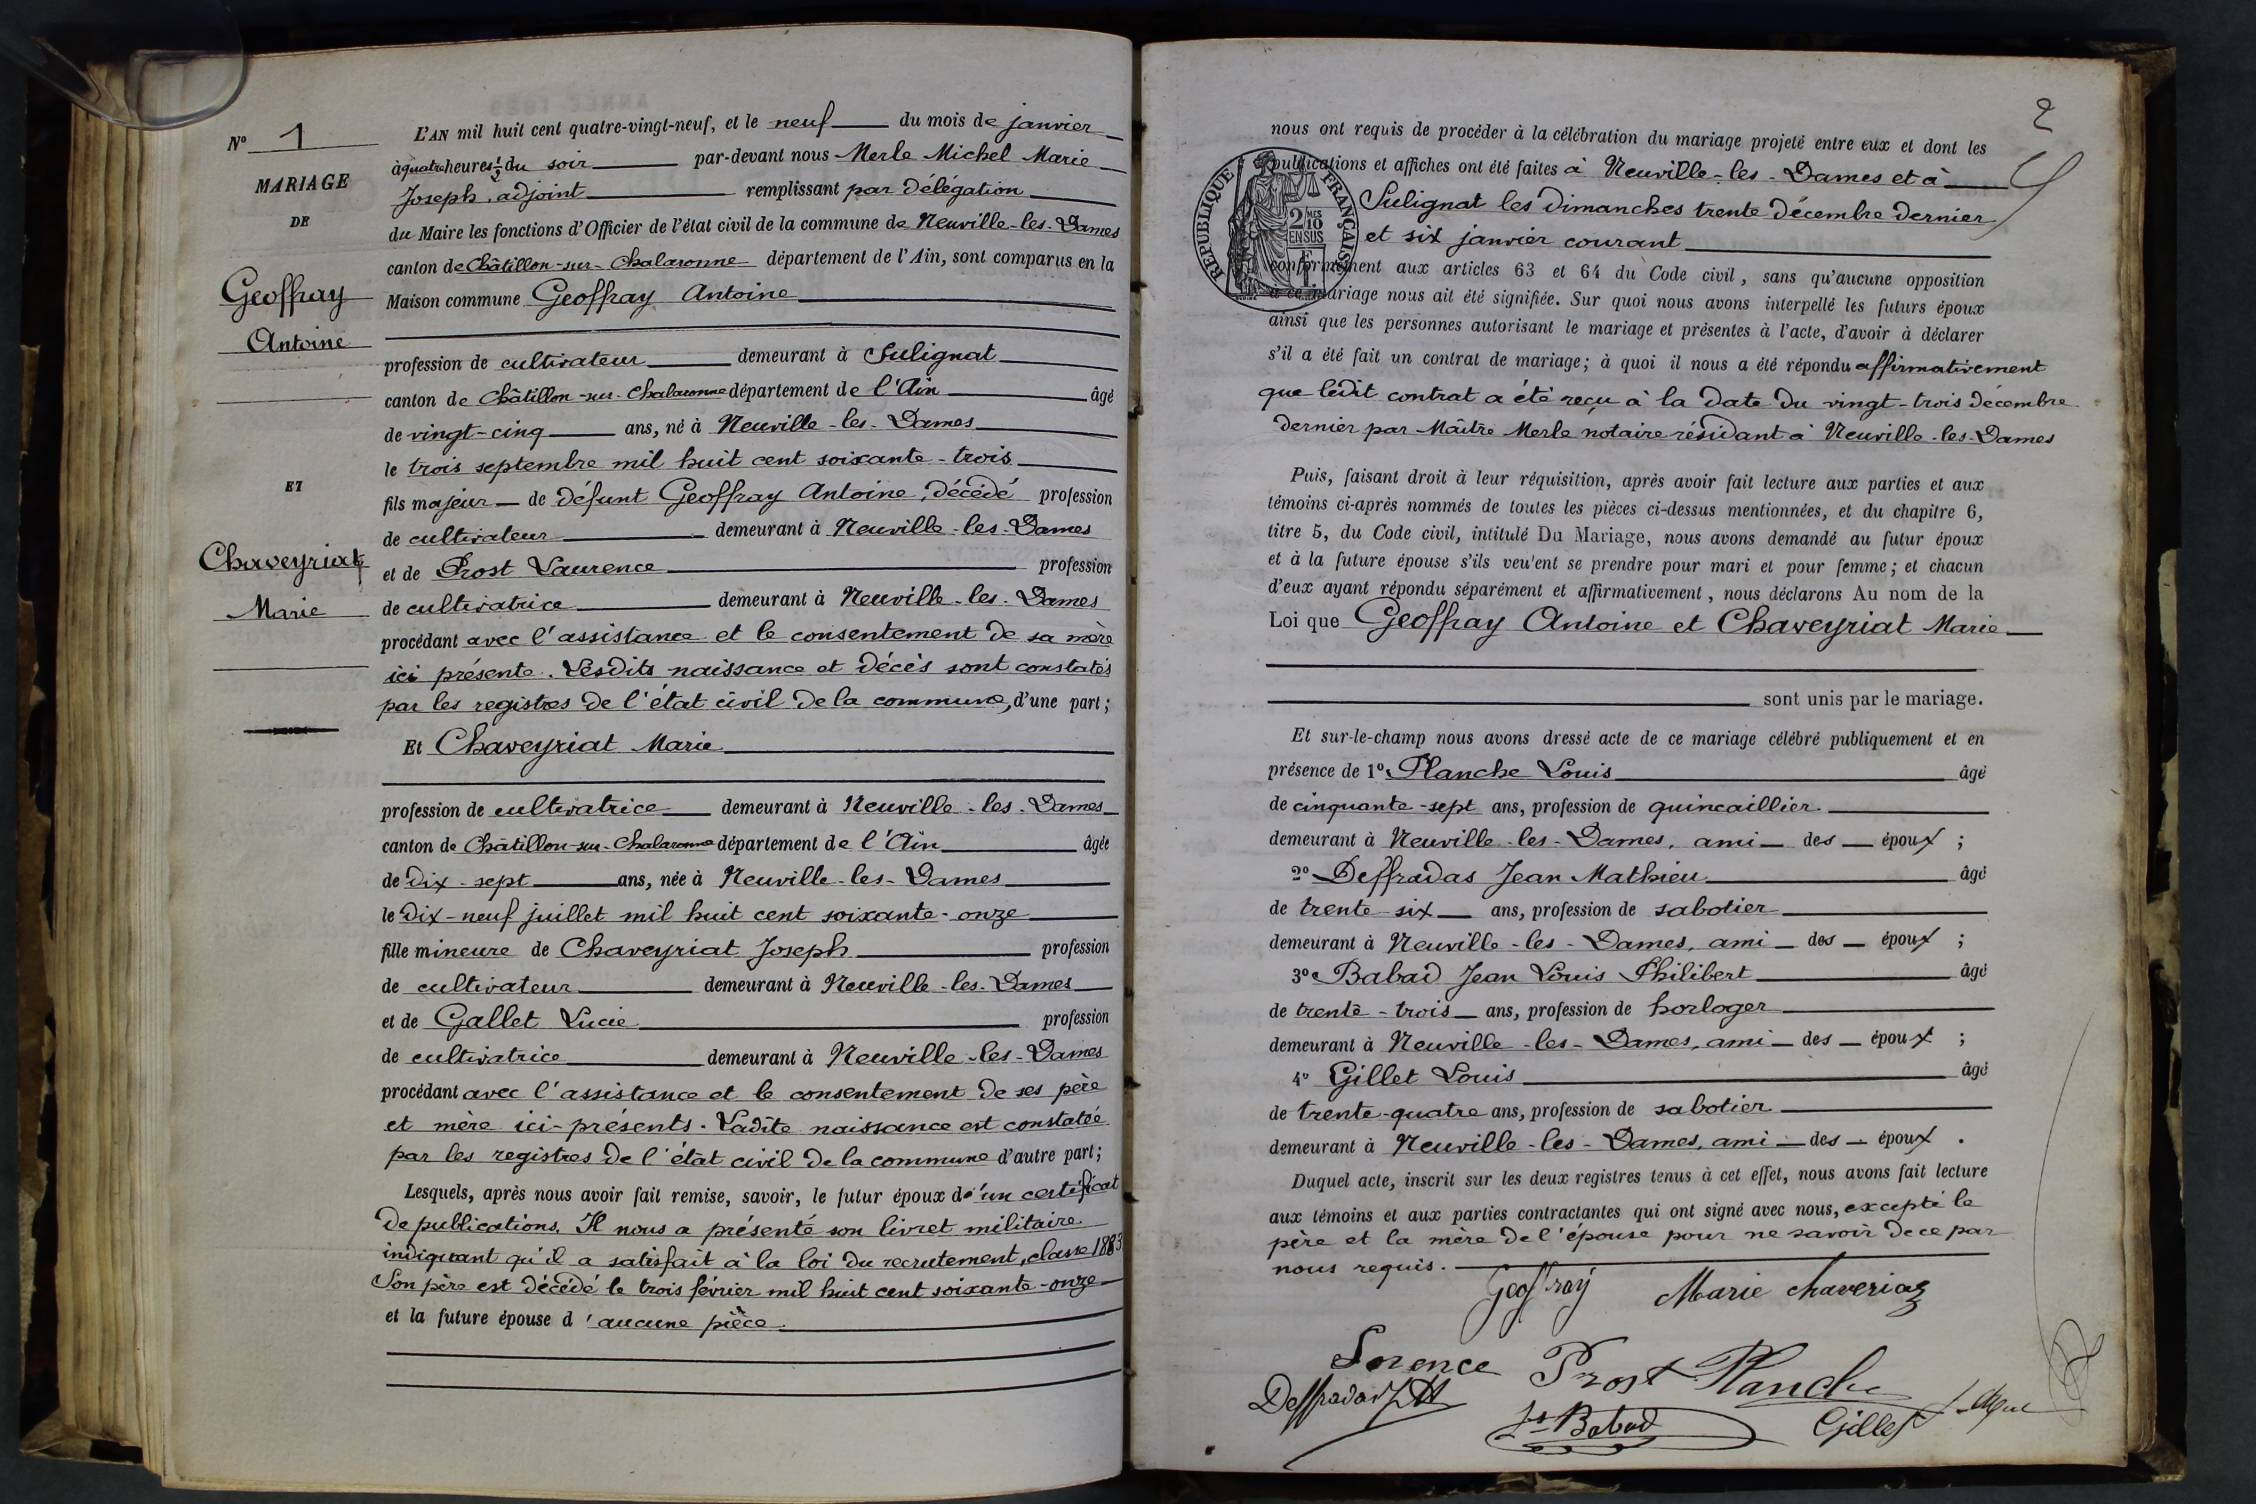 N° 1
MARIAGE
DE
Geoffray
Antoine
ET
Chaveyriat
Marie
L'AN mil huit cent quatre-vingt-neuf, et le neuf du mois de janvier
à quatre heures 1/2 du soir par-devant nous Merle Michel Marie
Joseph, adjoint remplissant par délégation
du Maire les fonctions d'Officier de l'état civil de la commune de Neuville-les-Dames
canton de Châtillon-sur-Chalaronne département de l'Ain, sont comparus en la
Maison commune Geoffray Antoine
profession de cultivateur demeurant à Sulignat
canton de Châtillon-sur-Chalaronne département de l'Ain âgé
de vingt-cinq ans, né à Neuville-les-Dames
le trois septembre mil huit cent soixante-trois
fils majeur de défunt Geoffray Antoine, décédé profession
de cultivateur demeurant à Neuville-les-Dames
et de Prost Laurence profession
de cultivatrice demeurant à Neuville-les-Dames
procédant avec l'assistance et le consentement de sa mère
ici présente. Lesdits naissance et décès sont constatés
par les registres de l'état civil de la commune, d'une part;
Et Chaveyriat Marie
profession de cultivatrice demeurant à Neuville-les-Dames
canton de Châtillon-sur-Chalaronne département de l'Ain âgée
de dix-sept ans, née à Neuville-les-Dames
le dix-neuf juillet mil huit cent soixante-onze
fille mineure de Chaveyriat Joseph profession
de cultivateur demeurant à Neuville-les-Dames
et de Gallet Lucie profession
de cultivatrice demeurant à Neuville-les-Dames
procédant avec l'assistance et le consentement de ses père
et mère ici-présents. Ladite naissance est constatée
par les registres de l'état civil de la commune d'autre part;
Lesquels, après nous avoir fait remise, savoir, le futur époux d'un certificat
de publications. Il nous a présenté son livret militaire
indiquant qu'il a satisfait à la loi du recrutement, classe 1883
Son père est décédé le trois février mil huit cent soixante-onze
et la future épouse d'aucune pièce.
2
nous ont requis de procéder à la célébration du mariage projeté entre eux et dont les
publications et affiches ont été faites à Neuville-les-Dames et à
Sulignat les dimanches trente décembre dernier
et six janvier courant
RÉPUBLIQUE FRANÇAISE
2 MES
10
EN SUS
conformément aux articles 63 et 64 du Code civil, sans qu'aucune opposition
à ce mariage nous ait été signifiée. Sur quoi nous avons interpellé les futurs époux
ainsi que les personnes autorisant le mariage et présentes à l'acte, d'avoir à déclarer
s'il a été fait un contrat de mariage; à quoi il nous a été répondu affirmativement
que ledit contrat a été reçu à la date du vingt-trois décembre
dernier par Maître Merle notaire résidant à Neuville-les-Dames
Puis, faisant droit à leur réquisition, après avoir fait lecture aux parties et aux
témoins ci-après nommés de toutes les pièces ci-dessus mentionnées, et du chapitre 6,
titre 5, du Code civil, intitulé Du Mariage, nous avons demandé au futur époux
et à la future épouse s'ils veulent se prendre pour mari et pour femme; et chacun
d'eux ayant répondu séparément et affirmativement, nous déclarons Au nom de la
Loi que Geoffray Antoine et Chaveyriat Marie
sont unis par le mariage.
Et sur-le-champ nous avons dressé acte de ce mariage célébré publiquement et en
présence de 1° Planche Louis âgé
de cinquante-sept ans, profession de quincaillier
demeurant à Neuville-les-Dames, ami des époux;
2° Deffradas Jean Mathieu âgé
de trente-six ans, profession de sabotier
demeurant à Neuville-les-Dames, ami des époux;
3° Babad Jean Louis Philibert âgé
de trente-trois ans, profession de horloger
demeurant à Neuville-les-Dames, ami des époux;
4° Gillet Louis âgé
de trente-quatre ans, profession de sabotier
demeurant à Neuville-les-Dames, ami des époux.
Duquel acte, inscrit sur les deux registres tenus à cet effet, nous avons fait lecture
aux témoins et aux parties contractantes qui ont signé avec nous, excepté le
père et la mère de l'épouse pour ne savoir de ce par
nous requis.
Geoffray Marie Chaveriaz
Lorence Prost Planche
Deffradas JM Js Babad Gillet